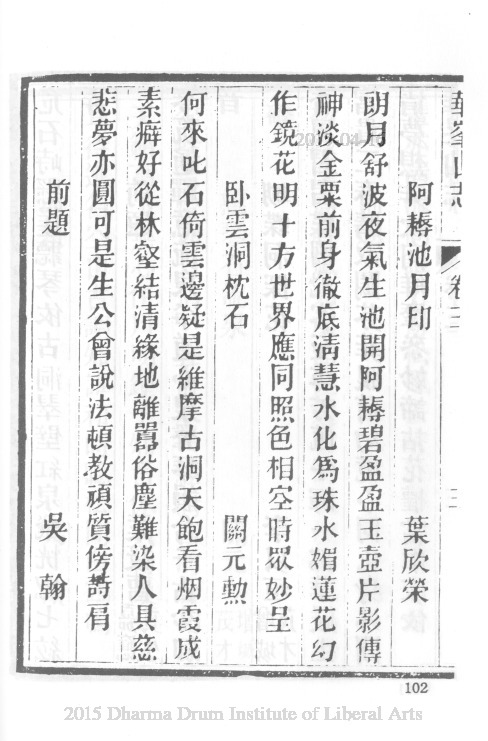 阿耨池月印 葉欣榮
朗月舒波夜氣生池開阿耨碧盈盈玉壺片影傳
神淡金粟前身徹底清慧水化爲珠水媚蓮花幻
作鏡花明十方世界應同照色相空時眾妙呈
臥雲洞枕石 關元勳
何來叱石倚雲邊疑是維摩古洞天飽看烟霞成
素癖好從林壑結清緣地離囂俗塵難染人具慈
悲夢亦圓可是生公會說法頓教頑質傍詩肩
前題 吳翰
102
2015 Dharma Drum Institute of Liberal Arts